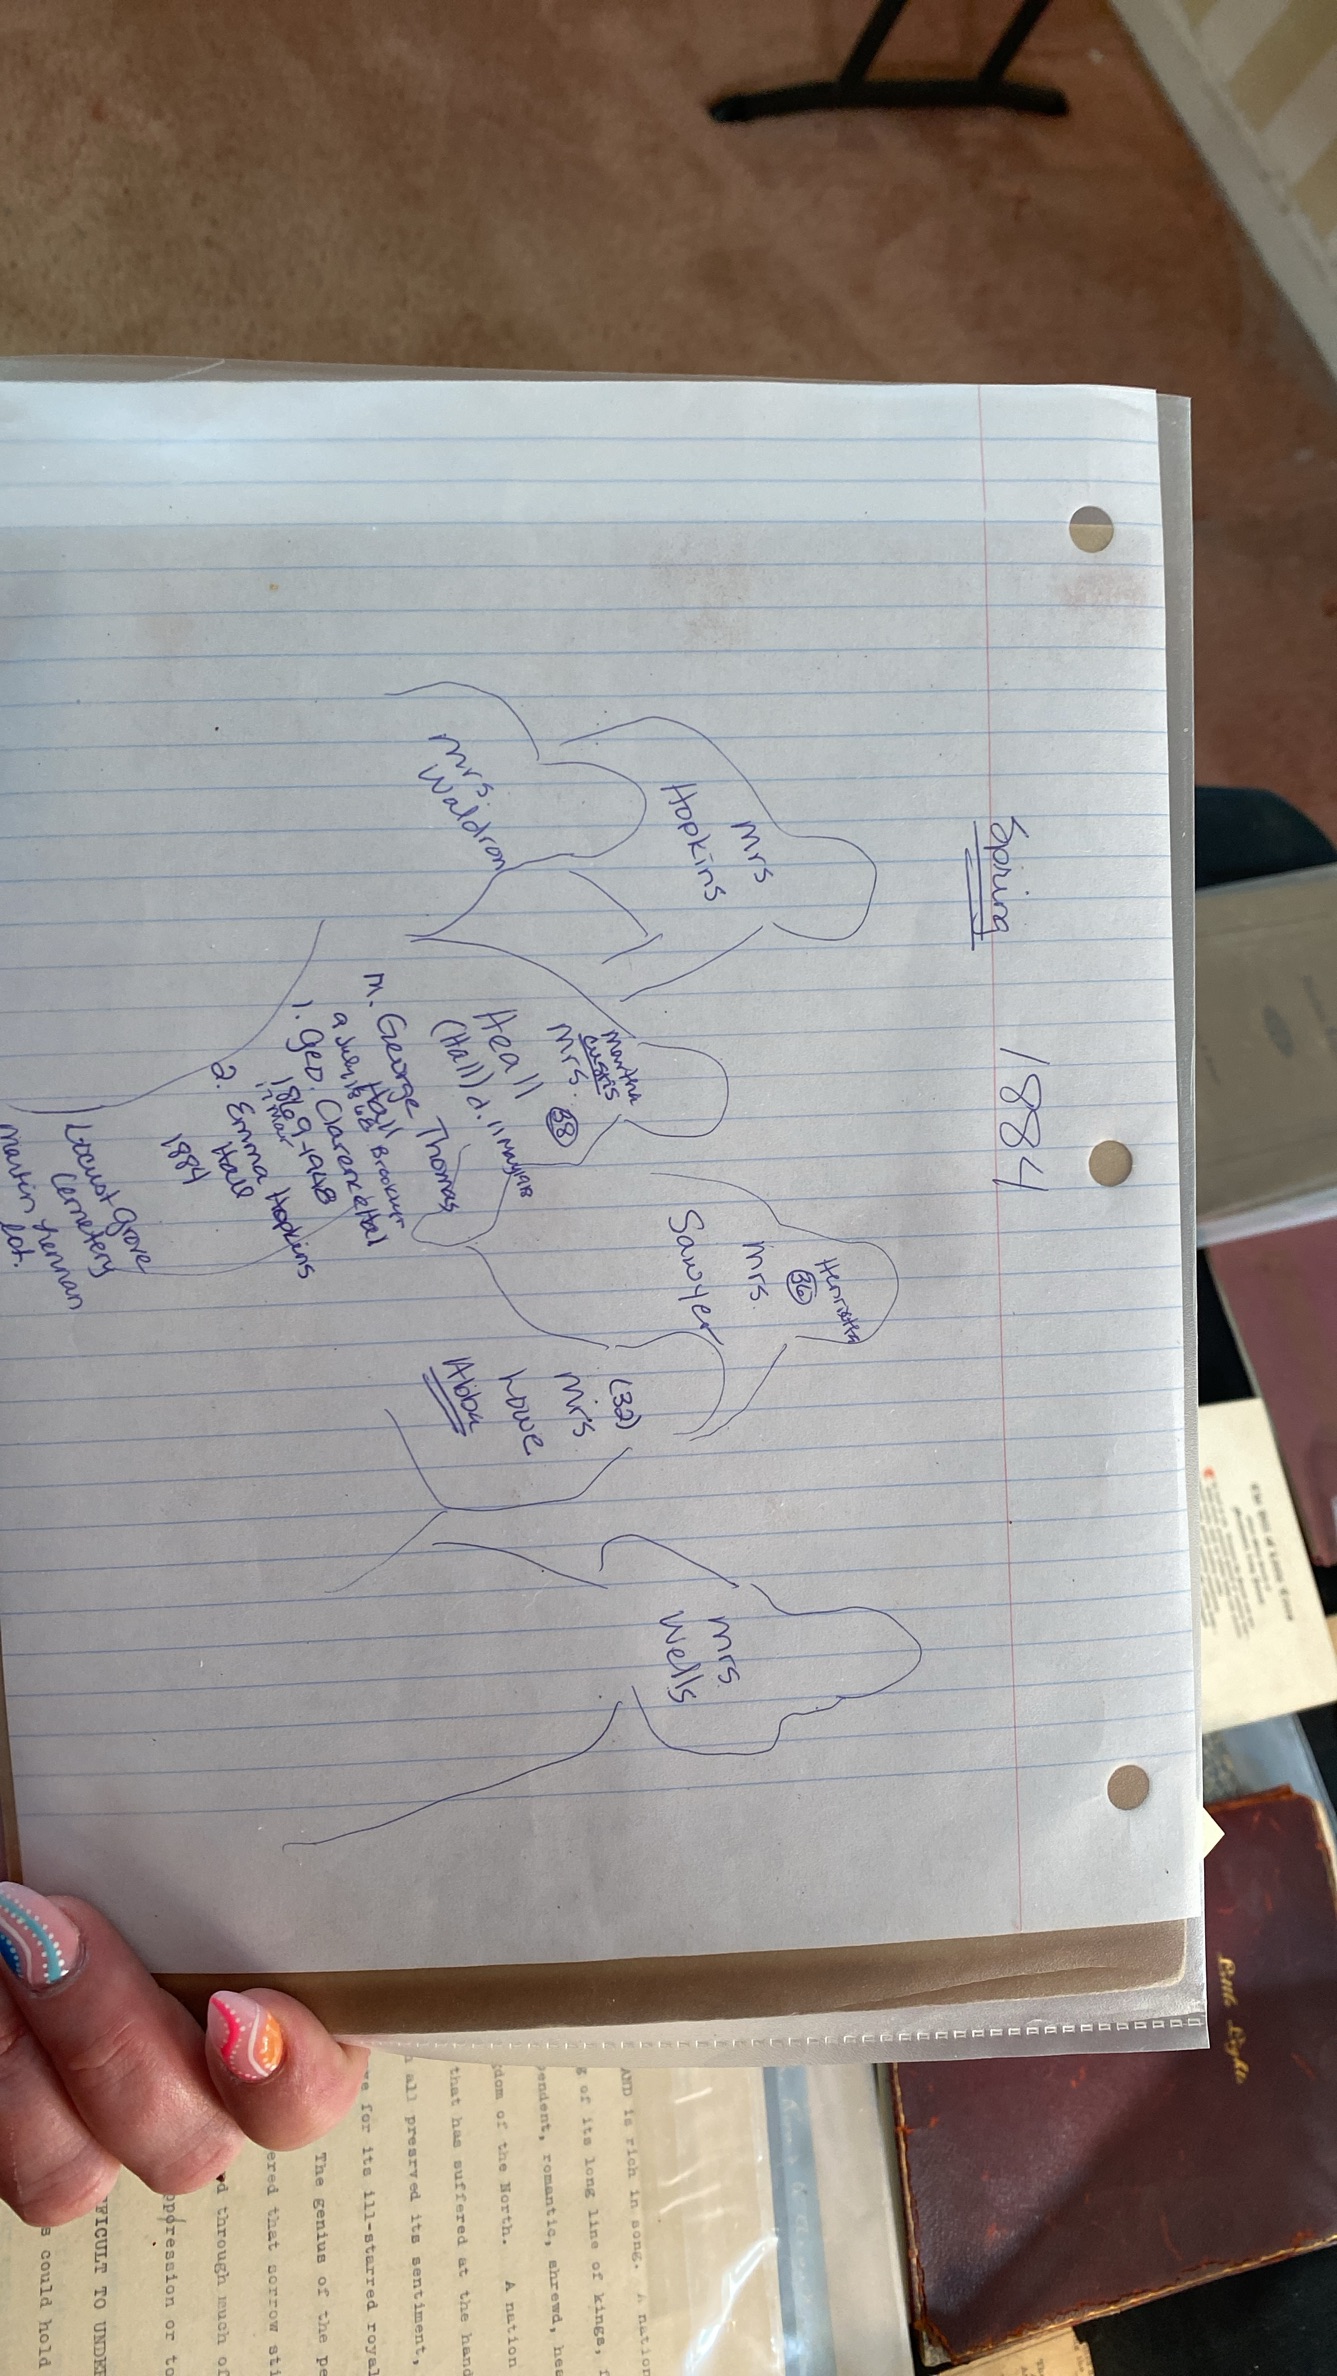 Spring 1884
Mrs
Hopkins
Mrs.
Waldron
Martha
Mrs. (38)
Heall
(Hall) d. 11 May 1918
M. George Thomas
Hall
1. Geo. Clarence Hall
1869-1948
2. Emma Hopkins
Hall
1884
Locust Grove
Cemetery
lot.
Henrietta
(36)
Mrs.
Sawyer
(32)
Mrs
Lowe
Abba
Mrs
Wells
Little Lights
AND is rich in song. A nation
g of its long line of kings,
pendent, romantic, shrewd,
dom of the North. A nation
that has suffered at the hand
all presrved its sentiment,
for its ill-starred
The genius of the
ered that sorrow
d through much of
oppression or to
s could hold